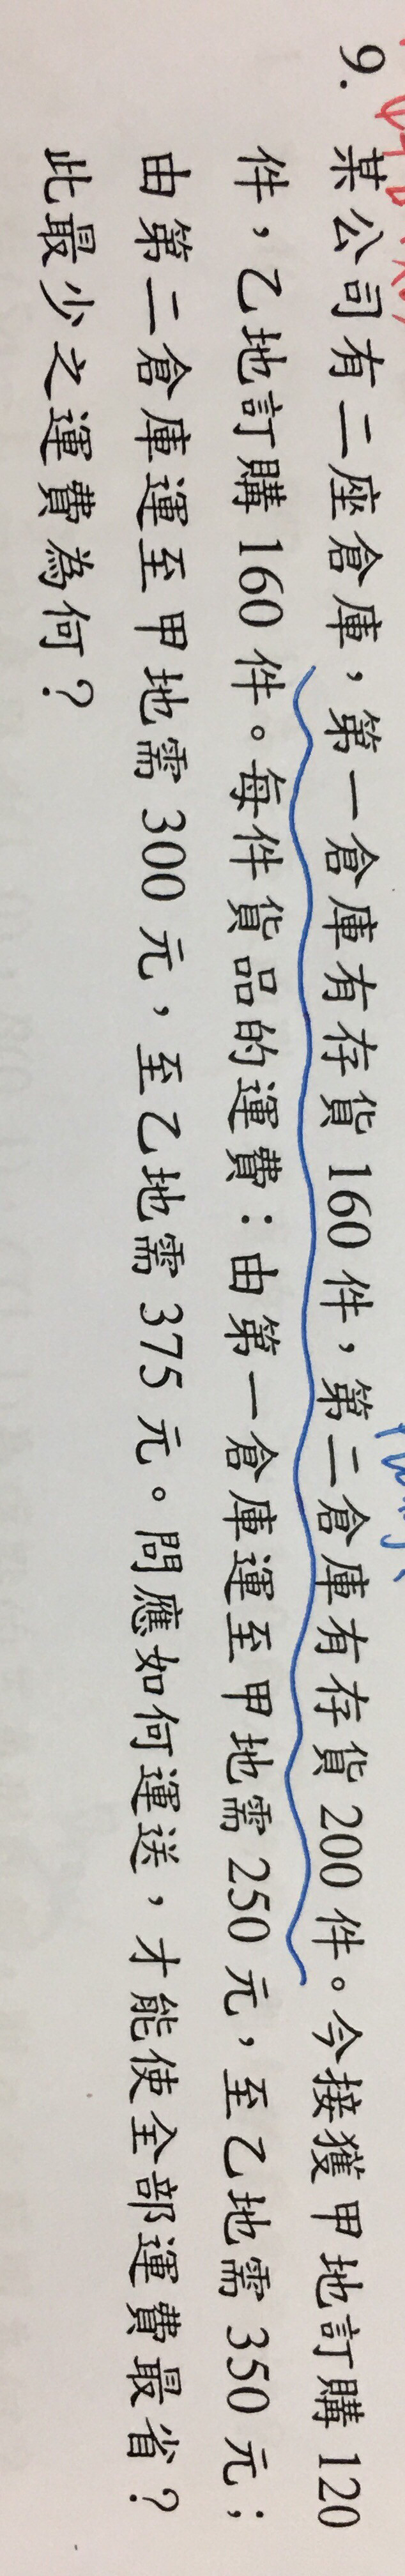 9. 某公司有二座倉庫，第一倉庫有存貨 160 件，第二倉庫有存貨 200 件。今接獲甲地訂購 120
件，乙地訂購 160 件。每件貨品的運費：由第一倉庫運至甲地需 250 元，至乙地需 350 元；
由第二倉庫運至甲地需 300 元，至乙地需 375 元。問應如何運送，才能使全部運費最省？
此最少之運費為何？